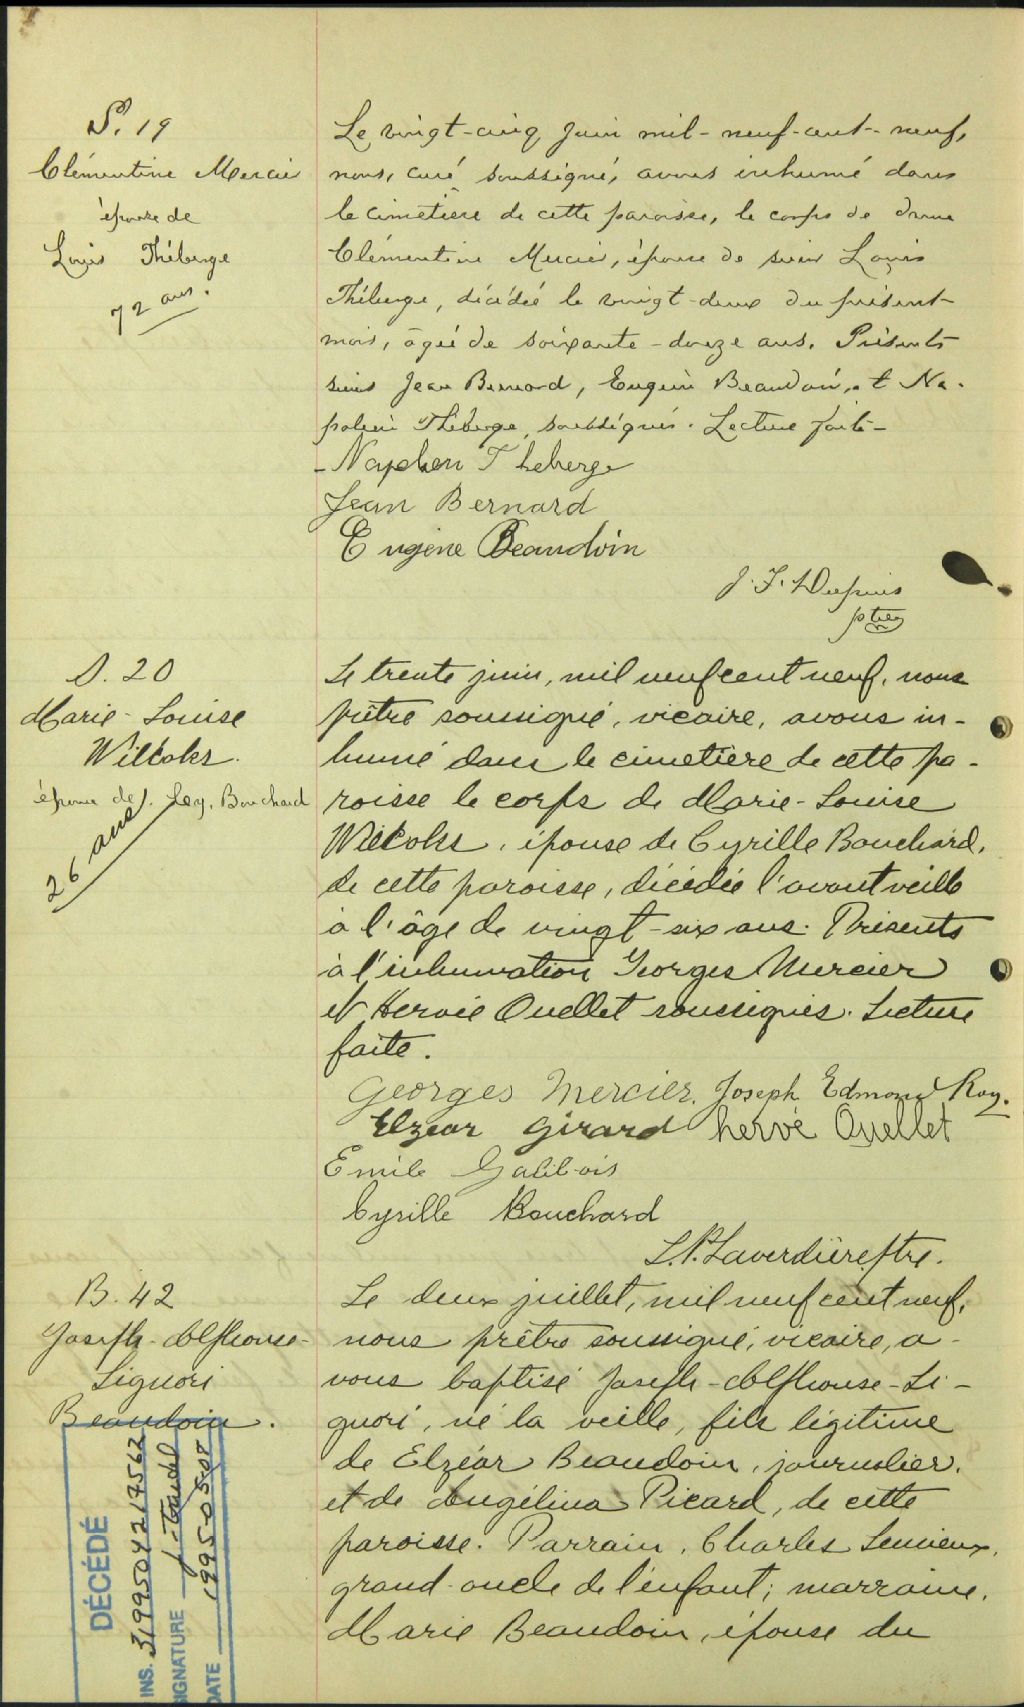 S. 19
Clémentine Mercier
épouse de
Louis Théberge
72 ans.
Le vingt-cinq juin mil-neuf-cent-neuf,
nous, curé soussigné, avons inhumé dans
le cimetière de cette paroisse, le corps de dame
Clémentine Mercier, épouse de sieur Louis
Théberge, décédée le vingt-deux du présent
mois, âgée de soixante-douze ans. Présents
sieurs Jean Bernard, Eugène Beaudoin, et Na-
poléon Théberge, soussignés. Lecture faite-
-Napoleon Theberge
Jean Bernard
Eugène Beaudoin
J. F. Dupuis
ptre
S. 20
Marie-Louise
Wilkoks.
épouse de Bouchard
26 ans
Le trente juin, mil neuf cent neuf, nous
prêtre soussigné, vicaire, avons in-
humé dans le cimetière de cette pa-
roisse le corps de Marie-Louise
Wilkoks, épouse de Cyrille Bouchard,
de cette paroisse, décédée l'avant veille
à l'âge de vingt-six ans. Présents
à l'inhumation Georges Mercier
et Hervé Ouellet soussignés. Lecture
faite.
Georges Mercier. Joseph Edmond Roy.
Elzear Girard hervé Ouellet
Emile Galibois
Cyrille Bouchard
L.P. Laverdière ptre.
B. 42
Joseph-Alphonse-
Liguori
Beaudoin.
Le deux juillet, mil neuf cent neuf,
nous prêtre soussigné, vicaire, a-
vons baptisé Joseph-Alphonse-Li-
guori, né la veille, fils légitime
de Elzéar Beaudoin, journalier,
et de Angélina Picard, de cette
paroisse. Parrain, Charles Lemieux,
grand-oncle de l'enfant; marraine,
Marie Beaudoin, épouse du
DÉCÉDÉ
INS. 3199504217562
SIGNATURE
DATE 1995-05-08